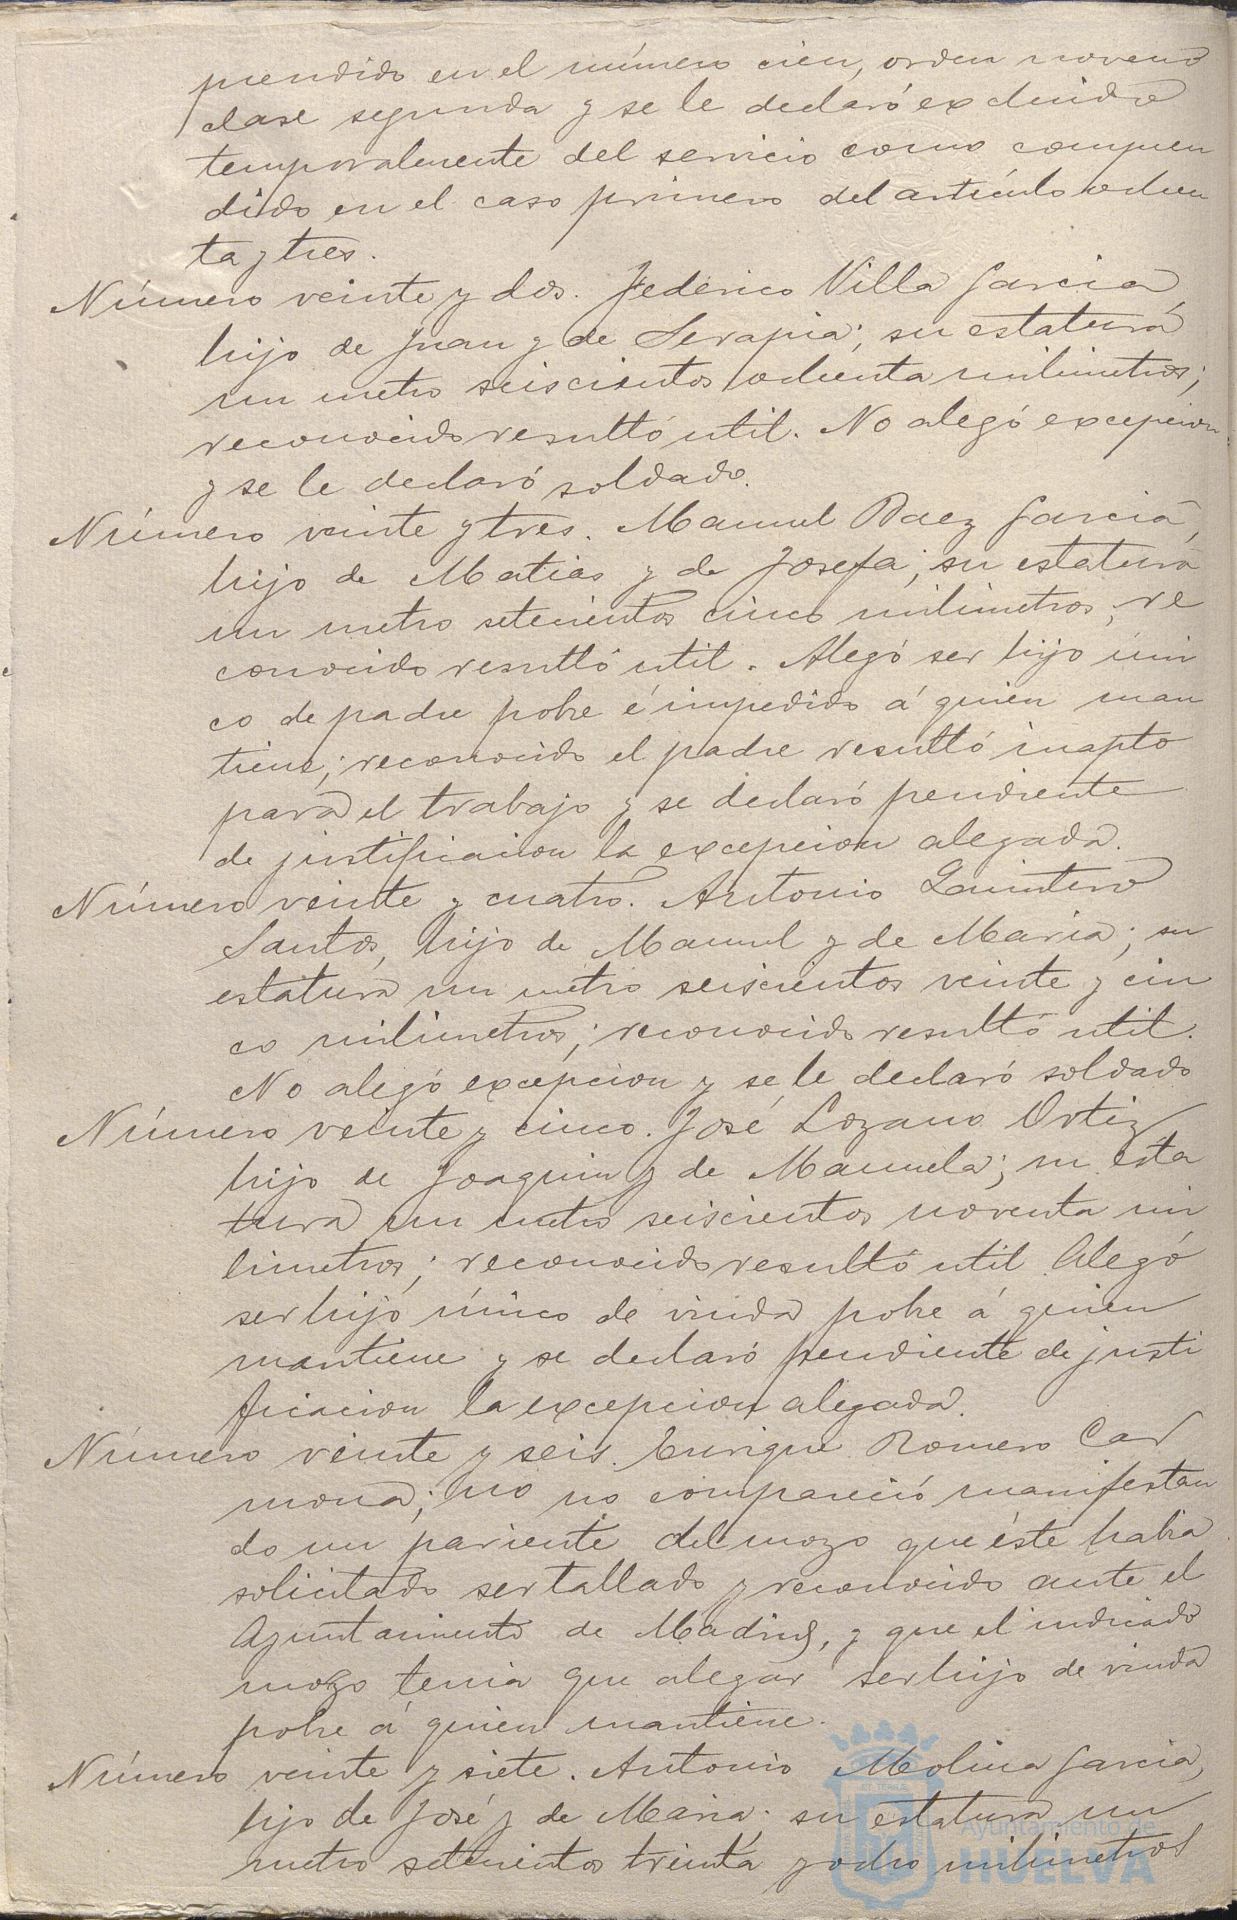 prendido en el número cien, orden noveno
clase segunda y se le declaró excluido
temporalmente del servicio como compren
dido en el caso primero del artículo ochen
ta y tres.
Número veinte y dos. Federico Villa Garcia,
hijo de Juan y de Serapia; su estatura
un metro seiscientos ochenta milimetros;
reconocido resultó util. No alegó excepcion
y se le declaró soldado.
Número veinte y tres. Manuel Baez Garcia,
hijo de Matias y de Josefa; su estatura
un metro setecientos cinco milimetros; re
conocido resultó util. Alegó ser hijo úni
co de padre pobre é impedido á quien man
tiene; reconocido el padre resultó inapto
para el trabajo y se declaró pendiente
de justificacion la excepcion alegada.
Número veinte y cuatro. Antonio Quintero
Santos, hijo de Manuel y de Maria; su
estatura un metro seiscientos veinte y cin
co milimetros; reconocido resultó util.
No alegó excepcion y se le declaró soldado
Número veinte y cinco. José Lozano Ortiz
hijo de Joaquin y de Manuela; su esta
tura un metro seiscientos noventa mi
limetros; reconocido resultó util. Alegó
ser hijo único de viuda pobre á quien
mantiene y se declaró pendiente de justi
ficacion la excepcion alegada.
Número veinte y seis. Enrique Romero Car
mona; no no compareció manifestan
do un pariente del mozo que éste habia
solicitado ser tallado y reconocido ante el
Ayuntamiento de Madrid, y que el indicado
mozo tenia que alegar ser hijo de viuda
pobre á quien mantiene.
Número veinte y siete. Antonio Molina Garcia,
hijo de José y de Maria; su estatura un
metro setecientos treinta y ocho milimetros
Ayuntamiento de
HUELVA